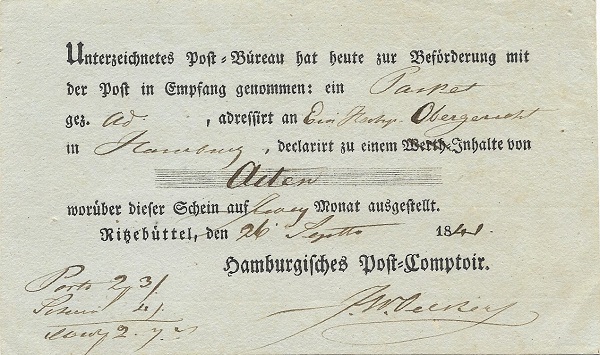 Unterzeichnetes Post-Büreau hat heute zur Beförderung mit
der Post in Empfang genommen: ein Packet
gez. Ad. , adressirt an Ein Hochp. Obergericht
in Hamburg, declarirt zu einem Werth-Inhalte von
Acten
worüber dieser Schein auf zwey Monat ausgestellt.
Ritzebüttel, den 26 Septbr 1841.
Hamburgisches Post-Comptoir.
Porto 2 3/
Schein 4/
2